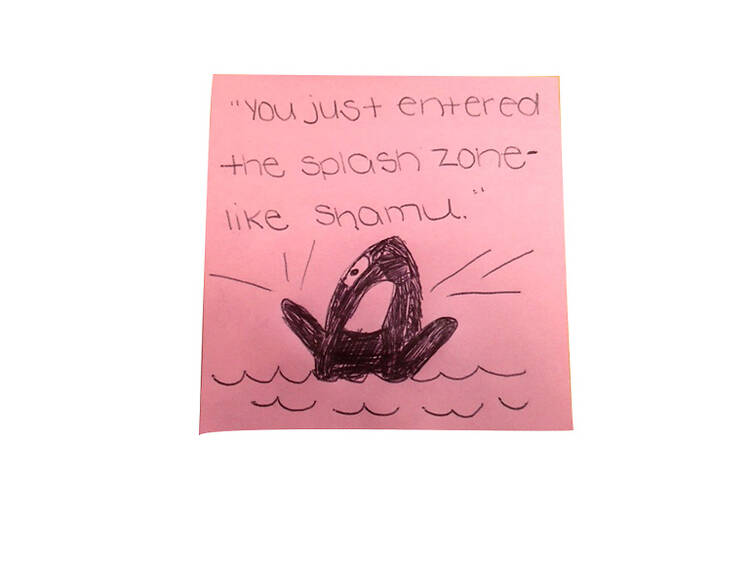 "You just entered
the splash zone-
like Shamu."